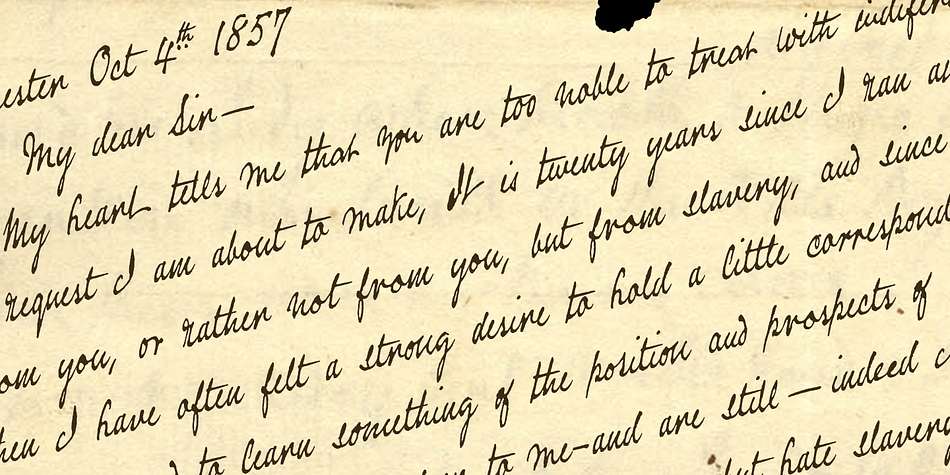 Oct 4th 1857
My dear Sir—
My heart tells me that you are too noble to treat with
request I am about to make, It is twenty years since I ran
you, or rather not from you, but from slavery, and since
I have often felt a strong desire to hold a little
to learn something of the position and prospects of
to me—and are still—indeed
but hate